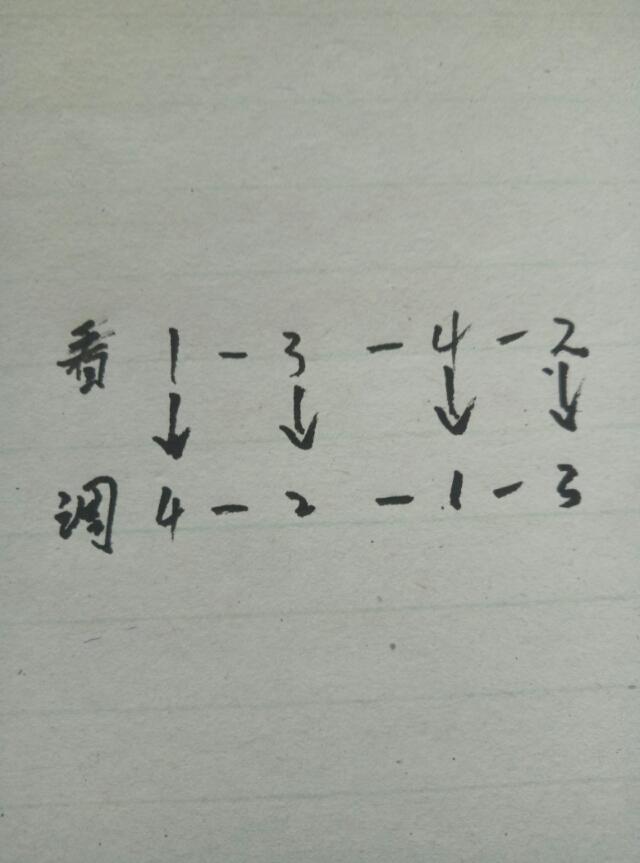 看 1 - 3 - 4 - 2
↓ ↓ ↓ ↓
调 4 - 2 - 1 - 3